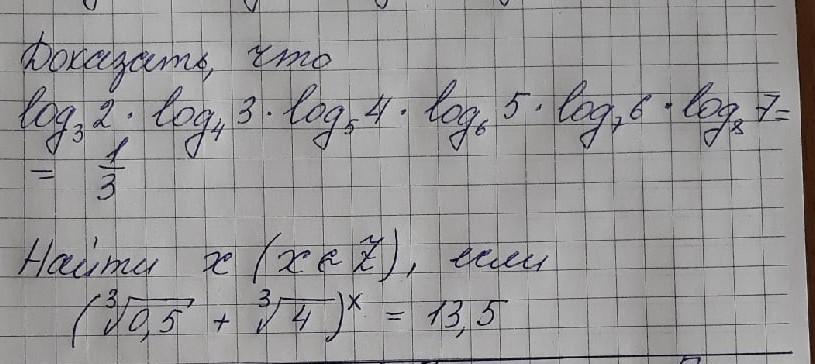 Доказать, что
log₃2 · log₄3 · log₅4 · log₆5 · log₇6 · log₈7 =
= 1/3
Найти x (x ∈ Z), если
(∛0,5 + ∛4)ˣ = 13,5